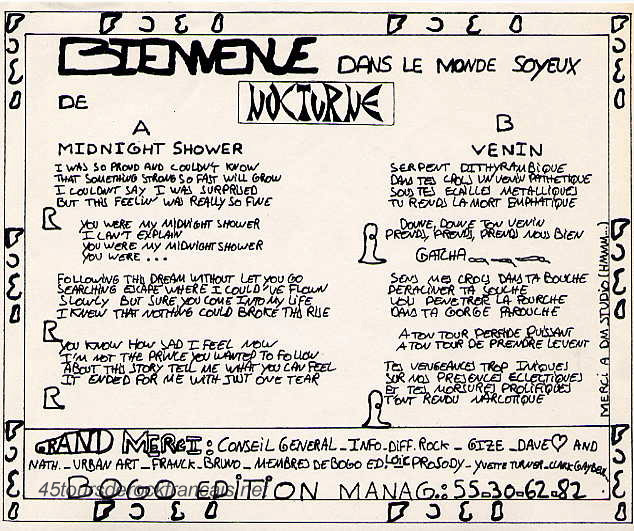 BIENVENUE DANS LE MONDE SOYEUX
DE NOCTURNE
A
MIDNIGHT SHOWER
I WAS SO PROUD AND COULDN'T KNOW
THAT SOMETHING STRONG SO FAST WILL GROW
I COULDN'T SAY I WAS SURPRISED
BUT THIS FEELIN' WAS REALLY SO FINE
R YOU WERE MY MIDNIGHT SHOWER
I CAN'T EXPLAIN
YOU WERE MY MIDNIGHT SHOWER
YOU WERE ...
FOLLOWING THIS DREAM WITHOUT LET YOU GO
SEARCHING ESCAPE WHERE I COULD'VE FLOWN
SLOWLY BUT SURE YOU COME INTO MY LIFE
I KNEW THAT NOTHING COULD BROKE THIS RISE
R
YOU KNOW HOW SAD I FEEL NOW
I'M NOT THE PRINCE YOU WANTED TO FOLLOW
ABOUT THIS STORY TELL ME WHAT YOU CAN FEEL
IT ENDED FOR ME WITH JUST ONE TEAR
R
B
VENIN
SERPENT DITHYRAMBIQUE
DANS TES CROCS UN VENIN PATHETIQUE
SOUS TES ECAILLES METALLIQUES
TU RENDS LA MORT EMPHATIQUE
R DONNE, DONNE TON VENIN
PRENDS, PRENDS, PRENDS NOUS BIEN
GATCHA
SENS MES CROCS DANS TA BOUCHE
DERACINER TA SOUCHE
VOIS PENETRER LA FOURCHE
DANS TA GORGE FAROUCHE
A TON TOUR PERFIDE PUISSANT
A TON TOUR DE PRENDRE LEVENT
TES VENGEANCES TROP INIQUES
SUR NOS PRESENCES ECLECTIQUES
ET TES MORSURES PROLIFIQUES
T'ONT RENDU NARCOTIQUE
R
MERCI A DM STUDIO (HMMM...)
GRAND MERCI: CONSEIL GENERAL_INFO.DIFF.ROCK_GIZE_DAVE♡ AND
NATH._URBAN ART_FRANCK.BRUNO_MEMBRES DE BOGO ED LOIC PROSODY_YVETTE TURNER_CLARK GAYBELL
BOGO EDITION MANAG.: 55.30.62.82
45toursderockfrancais.net